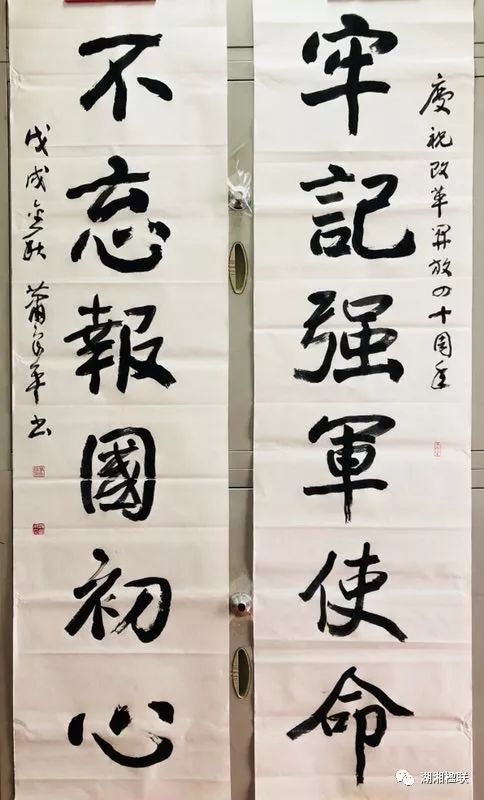 慶祝改革開放四十周年
牢記强軍使命
不忘報國初心
戊戌金秋 蕭家平书
湖湘楹联